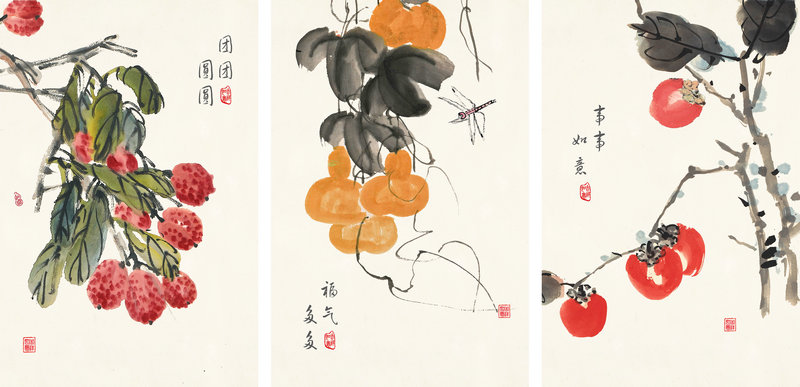 团团
圓圓
福气
多多
事事
如意